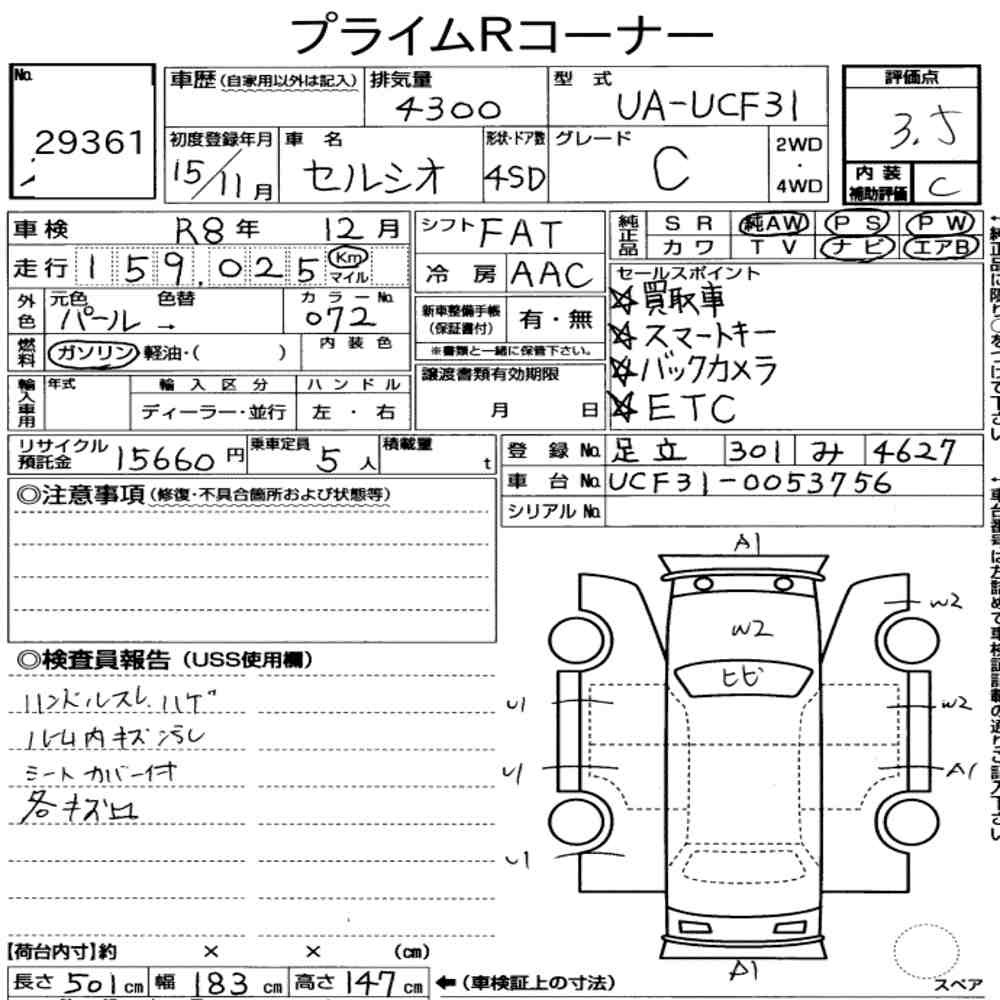 プライムRコーナー
No. 29361
車歴 (自家用以外は記入)
排気量 4300
型式 UA-UCF31
評価点 3.5
初度登録年月 15/11月
車名 セルシオ
形状・ドア数 4SD
グレード C
2WD・4WD
内装補助評価 C
車検 R8年 12月
走行 159,025 Km マイル
シフト FAT
冷房 AAC
純正品 SR 純AW PS PW
カワ TV ナビ エアB
外色 元色 パール→ 色替
カラーNo. 072
燃料 ガソリン・軽油・( )
内装色
新車整備手帳(保証書付) 有・無
※書類と一緒に保管下さい。
セールスポイント
☆買取車
☆スマートキー
☆バックカメラ
☆ETC
輸入車用 年式 輸入区分 ハンドル
ディーラー・並行 左・右
譲渡書類有効期限
月 日
リサイクル預託金 15660円
乗車定員 5人
積載量 t
登録No. 足立 301 み 4627
車台No. UCF31-0053756
シリアルNo.
◎注意事項 (修復・不具合箇所および状態等)
◎検査員報告 (USS使用欄)
ハンドルスレ.ハゲ
ルーム内キズ汚レ
シートカバー付
各キズ凹
A1
W2
W2
ヒビ
U1
W2
U1
A1
U1
A1
スペア
【荷台内寸】約 × × (cm)
長さ 501cm 幅 183cm 高さ 147cm
←(車検証上の寸法)